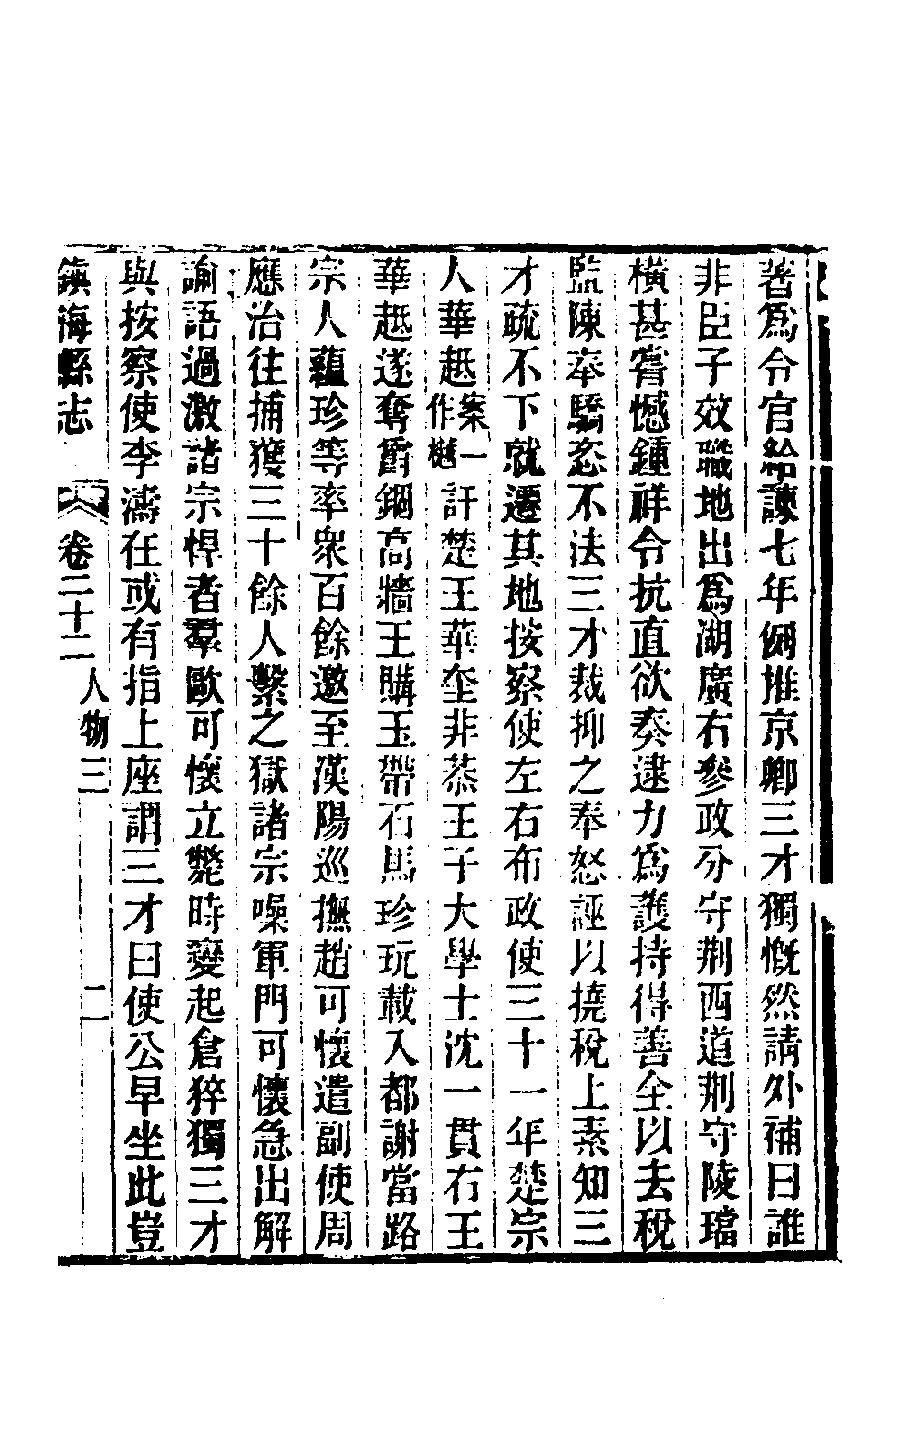 著爲令官給諫七年俪推京卿三才獨慨然請外補曰誰
非臣子效職地出爲湖廣右參政分守荆西道荆守陵璫
橫甚嘗憾鍾祥令抗直欲奏逮力爲護持得善全以去稅
監陳奉驕恣不法三才裁抑之奉怒誣以撓稅上素知三
才疏不下就遷其地按察使左右布政使三十一年楚宗
人華趆案一作樾訐楚王華奎非恭王子大學士沈一貫右王
華趆遂奪爵錮高牆王購玉帶石馬珍玩載入都謝當路
宗人蘊珍等率衆百餘邀至漢陽巡撫趙可懷遣副使周
應治往捕獲三十餘人繫之獄諸宗噪軍門可懷急出解
諭語過激諸宗悍者羣歐可懷立斃時變起倉猝獨三才
與按察使李濤在或有指上座謂三才曰使公早坐此豈
鎮海縣志 卷二十二 人物三 二